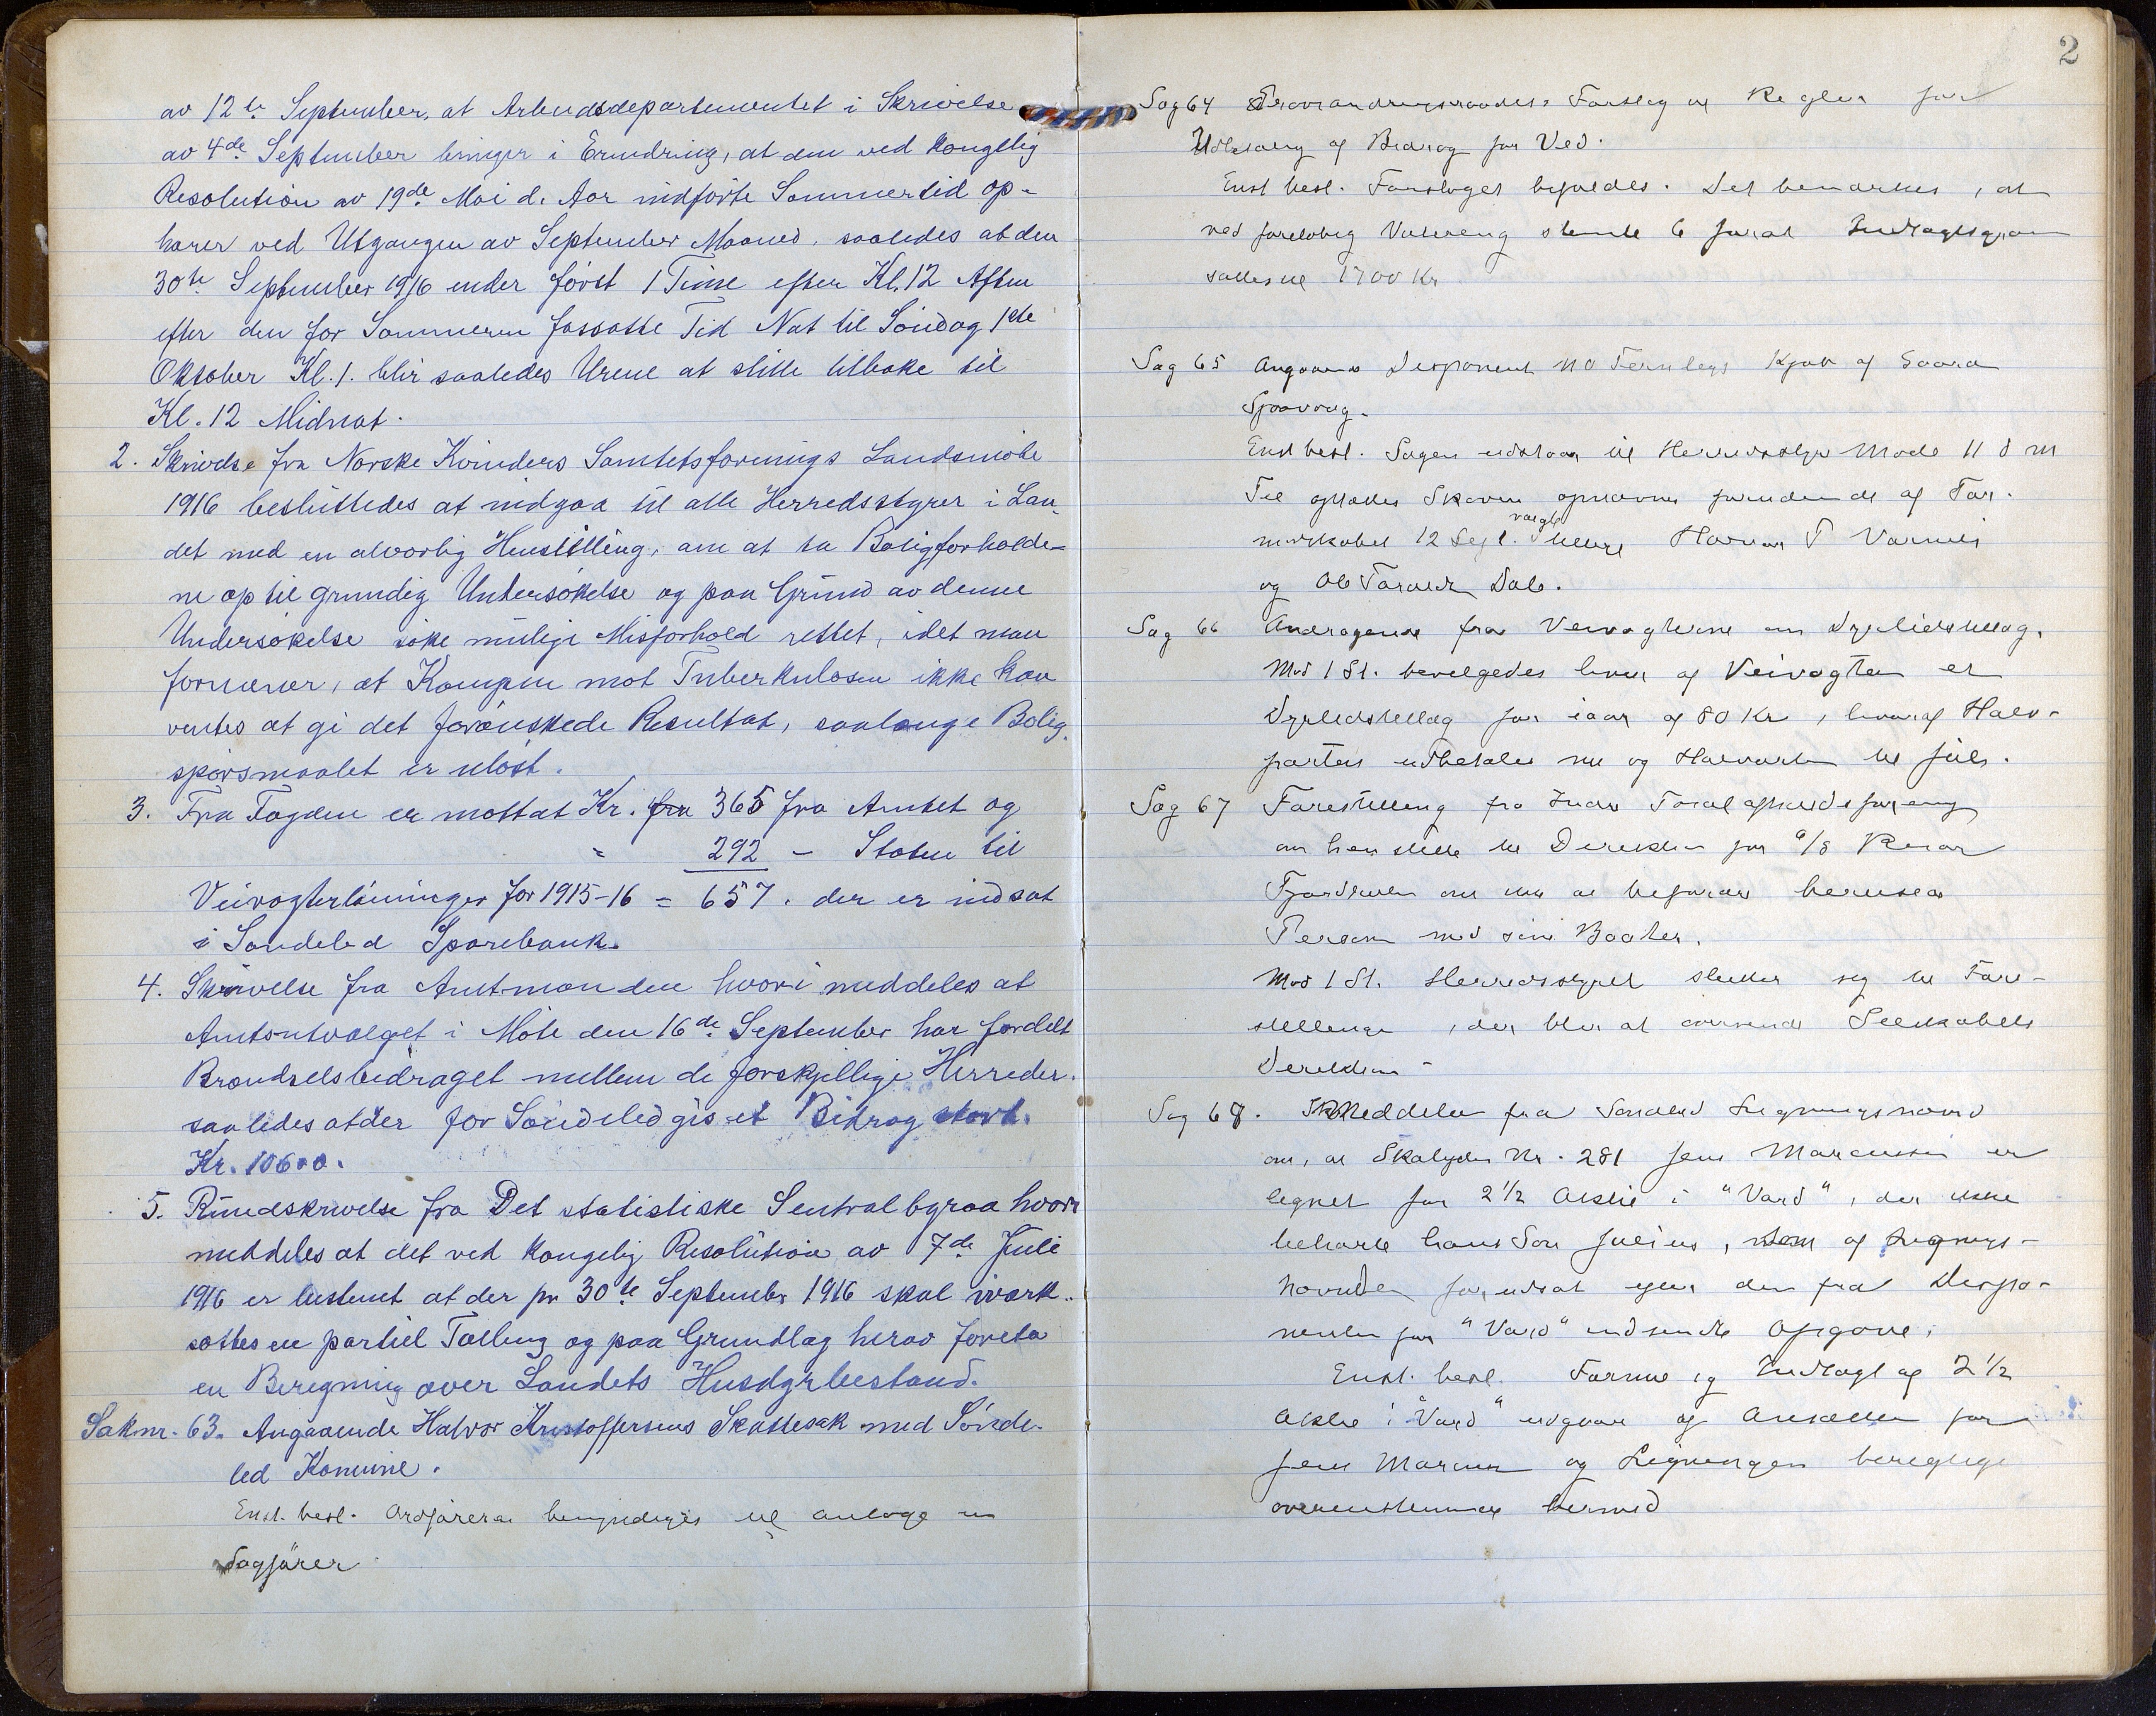 av 12te September, at Arbeidsdepartementet i Skrivelse
av 4de September bringer i Erindring, at den ved Kongelig
Resolution av 19de Mai d. Aar indførte Sommertid op-
hører ved Utgangen av September Maaned, saaledes at den
30te September 1916 ender først 1 Time efter Kl. 12 Aften
efter den for Sommeren fassatte Tid Nat til Söndag 1ste
Oktober Kl. 1. blir saaledes Urene at stille tilbake til
Kl. 12 Midnat.
2. Skrivelse fra Norske Kvinders Sanitetsforenings Landsmöte
1916 besluttedes at indgaa til alle Herredsstyrer i Lan-
det med en alvorlig Henstilling, om at ta Boligforholde-
ne op til grundig Undersökelse og paa Grund av denne
Undersökelse söke mulige Misforhold rettet, idet man
formener, at Kampen mot Tuberkulosen ikke kan
ventes at gi det forönskede Resultat, saalænge Bolig-
spörsmaalet er ulöst.
3. Fra Fogden er mottat Kr. fra 365 fra Amtet og
" 292 - Staten til
Veivogterlönninger for 1915-16 = 657. der er indsat
i Söndeled Sparebank.
4. Skrivelse fra Amtmanden hvori meddeles at
Amtsutvalget i Möte den 16de September har fordelt
Brændselsbidraget mellem de forskjellige Herreder.
saaledes at der for Söndeled gis et Bidrag stort.
Kr. 10600.
5. Rundskrivelse fra Det statistiske Sentralbyraa hvori
meddeles at det ved Kongelig Resolution av 7de Juli
1916 er bestemt at der pr 30te September 1916 skal iverk-
sættes en partiel Tælling og paa Grundlag herav foreta
en Beregning over Landets Husdyrbestand.
Sak nr. 63. Angaaende Halvor Kristoffersens Skattesak med Sönde-
led Komune.
Enst. besl. Ordförerer bemyndiges til antage en
Sagförer
2
Sag 64 Provianderingsraadets Forslag til Regler for
Udbetaling af Bidrag for Ved.
Enst besl. Forslaget bifaldes. Det bemærkes, at
ved foreløbig Votering stemte 6 for at Indtægtsgrænsen
sættes til 1700 Kr
Sag 65 Angaaende Disponent Kjøb af Gaard
Enst besl. Sagen udstaar til Herredsstyre Møde 11 d m
Til Skoven opnævnes af For-
mandskabet 12 Sept. valgte
og Ole Dale.
Sag 66 Andragende fra Veivogterne om Dyrtidstillæg.
Mod 1 St. bevilgedes hver af Veivogterne et
Dyrtidstillæg for iaar af 80 Kr, hvoraf Halv-
parten udbetales nu og Halvparten til Jul.
Sag 67 Forestilling fra Indre Totalafholdsforening
om henstille til Direktionen for Risør
Fjordruter om ikke at befordre berusede
Person med sine Baater.
Mod 1 St. Herredsstyret slutter sig til Fore-
stillingen, der blir at oversende Selskabets
Direktion -
Sag 68. Meddelelse fra Søndeled Ligningsnævnd
om, at Skatyder Nr. 281 Jens Marcussen er
lignet for 2 1/2 Aktie i "Vard", der ikke
tilhører hans Søn Julius, som af Lignings-
nævnden forudsat efter den fra Dispo-
nenten for "Vard" indsendte Opgave.
Enst. besl. Formue og Indtægt af 2 1/2
Aktie i "Vard" udgaar af Ansættelsen for
Jens Marcussen og Ligningen
overensstemmende hermed